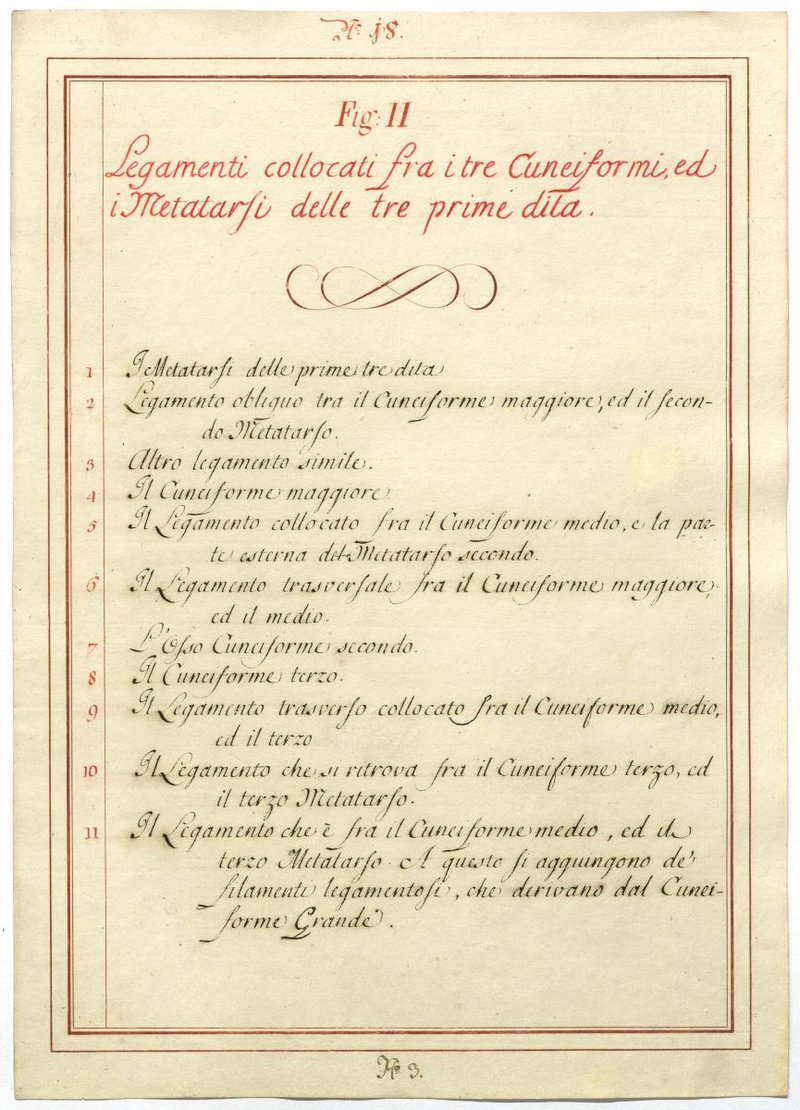 N.° 18.
Fig: II
Legamenti collocati fra i tre Cuneiformi, ed
i Metatarsi delle tre prime dita.
1 I Metatarsi delle prime tre dita
2 Legamento obliquo tra il Cuneiforme maggiore, ed il secon-
do Metatarso.
3 Altro legamento simile.
4 Il Cuneiforme maggiore
5 Il Legamento collocato fra il Cuneiforme medio, e la par-
te esterna del Metatarso secondo.
6 Il Legamento trasversale fra il Cuneiforme maggiore,
ed il medio.
7 L'Osso Cuneiforme secondo.
8 Il Cuneiforme terzo.
9 Il Legamento trasverso collocato fra il Cuneiforme medio,
ed il terzo
10 Il Legamento che si ritrova fra il Cuneiforme terzo, ed
il terzo Metatarso.
11 Il Legamento che è fra il Cuneiforme medio, ed il
terzo Metatarso. A questo si aggiungono de'
filamenti legamentosi, che derivano dal Cunei-
forme Grande.
N.° 3.